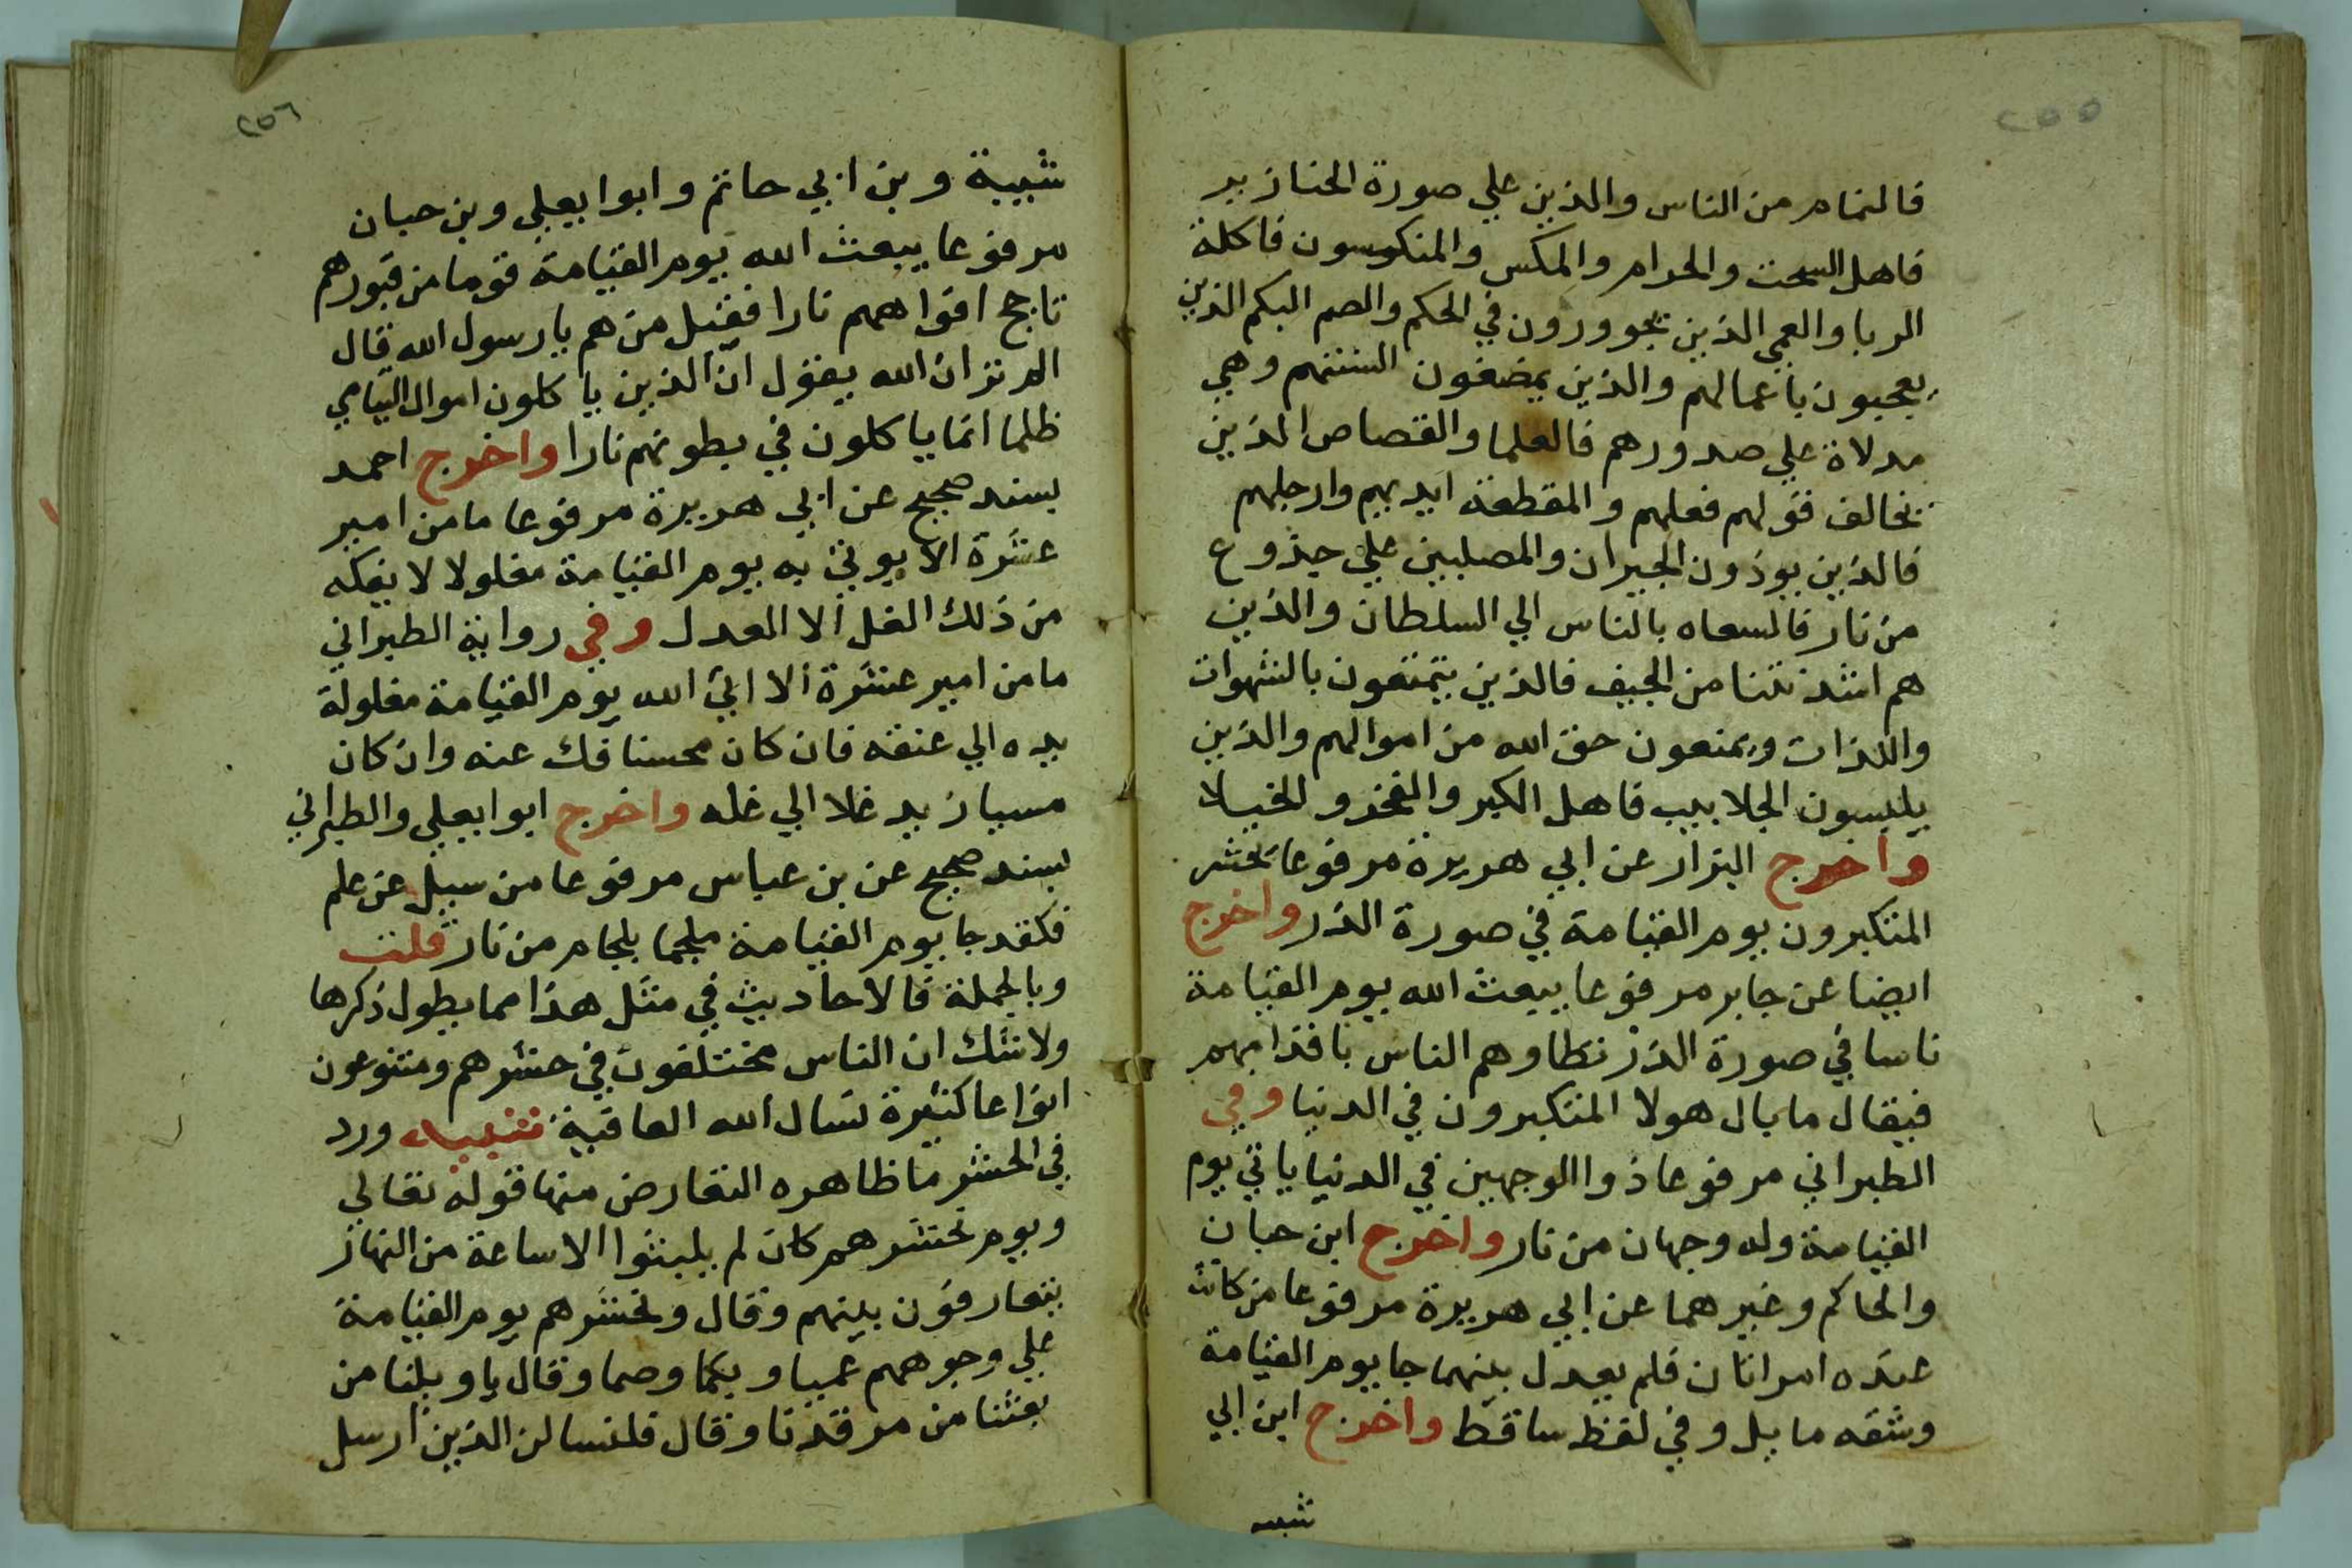 ٢٥٥
فالنمام من الناس والذين علي صورة الخنازير
فاهل السحت والحرام والمكس والمنكوسون فاكلة
الربا والعمي الذين يجوورون في الحكم والصم البكم الذين
يعجبون باعمالهم والذين يمضغون السنتهم وهي
مدلاة علي صدورهم فالعلما والقصاص الذين
يخالف قولهم فعلهم والمقطعة ايديهم وارجلهم
فالذين يوذون الجيران والمصلبين علي جذوع
من نار فالسعاه بالناس الي السلطان والذين
هم اشد نتنا من الجيف فالذين يتمتعون بالشهوات
واللذات ويمنعون حق الله من اموالهم والذين
يلبسون الجلابيب فاهل الكبر والفخر والخيلا
واخرج البزار عن ابي هريرة مرفوعا يحشر
المتكبرون يوم القيامة في صورة الذر واخرج
ايضا عن جابر مرفوعا يبعث الله يوم القيامة
ناسا في صورة الذر تطاوهم الناس باقدامهم
فيقال ما بال هولا المتكبرون في الدنيا وفي
الطبراني مرفوعا ذوا الوجهين في الدنيا ياتي يوم
القيامة وله وجهان من نار واخرج ابن حبان
والحاكم وغيرهما عن ابي هريرة مرفوعا من كانت
عنده امراتان فلم يعدل بينهما جا يوم القيامة
وشقه مايل وفي لفظ ساقط واخرج ابن ابي
شبيه
٢٥٦
شيبة وبن ابي حاتم وابوا يعلي وبن حبان
مرفوعا يبعث الله يوم القيامة قوما من قبورهم
تاجج افواههم نارا فقيل من هم يا رسول الله قال
الم تر ان الله يقول ان الذين ياكلون اموال اليتامي
ظلما انما ياكلون في بطونهم نارا واخرج احمد
بسند صحيح عن ابي هريرة مرفوعا ما من امير
عشرة الا يوتي به يوم القيامة مغلولا لا يفكه
من ذلك الغل الا العدل وفي رواية الطبراني
ما من امير عشرة الا اتي الله يوم القيامة مغلولة
يده الي عنقه فان كان محسنا فك عنه وان كان
مسيا زيد غلا الي غله واخرج ابوا يعلي والطبراني
بسند صحيح عن بن عباس مرفوعا من سيل عن علم
فكقد جا يوم القيامة ملجما بلجام من نار قلت
وبالجملة فالاحاديث في مثل هذا مما يطول ذكرها
ولا شك ان الناس مختلفون في حشرهم ومتنوعون
انواعا كثيرة نسال الله العافية تنبيه ورد
في الحشر ما ظاهره التعارض منها قوله تعالي
ويوم نحشرهم كان لم يلبثوا الا ساعة من النهار
يتعارفون بينهم وقال ونحشرهم يوم القيامة
علي وجوههم عميا وبكما وصما وقال يا ويلنا من
بعثنا من مرقدنا وقال فلنسالن الذين ارسل